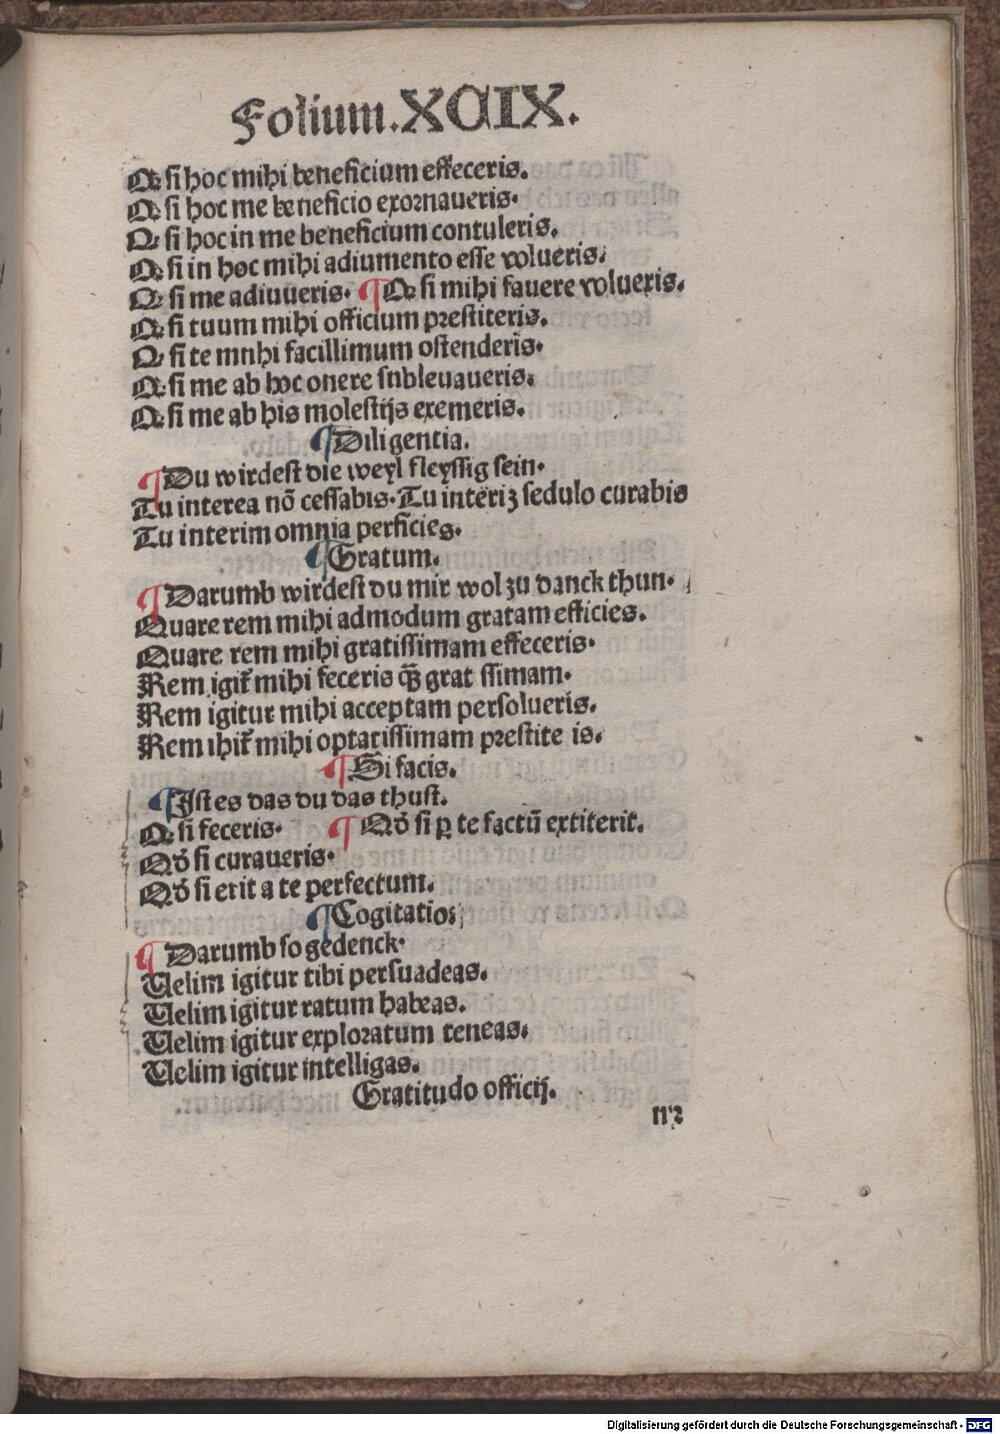 Folium.XCIX.
Q; si hoc mihi beneficium effeceris.
Q; si hoc me beneficio exornaueris.
Q; si hoc in me beneficium contuleris.
Q; si in hoc mihi adiumento esse volueris.
Q; si me adiuueris. ¶Q; si mihi fauere volueris.
Q; si tuum mihi officium prestiteris.
Q; si te mnhi facillimum ostenderis.
Q; si me ab hoc onere snbleuaueris.
Q; si me ab his molestijs exemeris.
¶Diligentia.
¶Du wirdest die weyl fleyssig sein.
Tu interea nō cessabis. Tu interiȝ sedulo curabis
Tu interim omnia perficies.
¶Gratum.
¶Darumb wirdest du mir wol zu danck thun.
Quare rem mihi admodum gratam efficies.
Quare rem mihi gratissimam effeceris.
Rem igit̄ mihi feceris q̄ȝ grat ssimam.
Rem igitur mihi acceptam persolueris.
Rem ihit̄ mihi optatissimam prestite is.
¶Si facis.
¶Ist es das du das thust.
Q; si feceris. ¶ Qđ si ꝑ te factū extiterit.
Qđ si curaueris.
Qđ si erit a te perfectum.
¶Cogitatio;
¶Darumb so gedenck.
Uelim igitur tibi persuadeas.
Uelim igitur ratum habeas.
Uelim igitur exploratum teneas.
Uelim igitur intelligas.
Gratitudo officij.
Digitalisierung gefördert durch die Deutsche Forschungsgemeinschaft - DFG